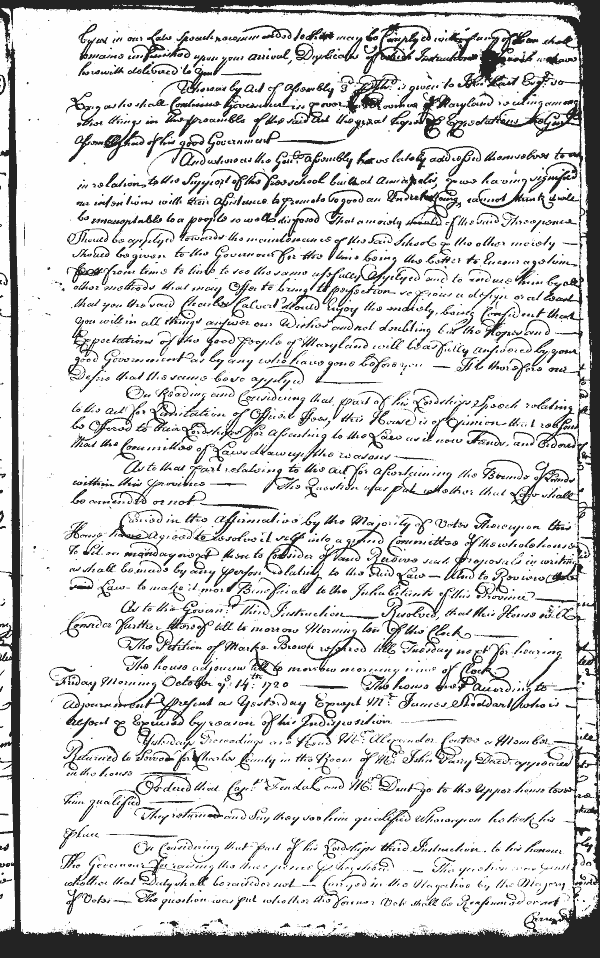 by us in our Law Speech recommended to him may be Complyed with if any of them shall
remaine unfinished upon your arrival, Duplicates of which Instructions & Speech we have
herewith delivered to you
Whereas by Act of Assembly 3d p hhd is given to John Hart Esqr so
Long as he shall Continue Governour in power of the Province of Maryland reciting among
other things in the Preamble of the said Act the great hopes & Expectations
Assembly had of his good Government
And whereas the Genll Assembly have lately addressed themselves to us
in relation to the Support of the free school built at Annapolis, & we having signified
our intentions with their Assistance to promote so good an Undertaking, cannot think it will
be unacceptable to a people so well disposed That a moiety should of the said Threepence
Should be applyed towards the maintenance of the said School & the other moiety
should be given to the Governour for the time being the better to Encourage him
from time to time to see the same usefully Applyed and to induce him by all
other methods that may offer to bring to perfection so pious a design or at least
that you the said Charles Calvert should enjoy this moiety being Confident that
you will in all things answer our Wishes and not doubting but the Hopes and
Expectations of the good People of Maryland will be as fully answered by your
good Government as by any who have gone before you Its therefore our
Desire that the same be so applyed
On Reading and Considering that part of his Lordships Speech relating
to the Act for Limitation of Officers Fees, this House is of Opinion that reasons
be Offered to their Lordships for Assenting to the Law as it now Stands, and Ordered
that the Committee of Laws draw up the reasons
As to that part relating to the Act for ascertaining the Bounds of Lands
within this Province The Question was put whether that Law shall
be amended or not
Carried in the Affirmative by the Majority of Votes Thereupon this
House have agreed to resolve it self into a grand Committee of the whole house
To sit on monday next then to Consider of and Receive such proposals in writing
as shall be made by any person relating to the said Law And to Review
said Law to make it more Beneficial to the Inhabitants of this Province
As to the Govern.rs third Instruction Resolved that this House will
Consider further thereof till to morrow Morning ten of the Clock
The Petition of Marke Brown referred till Tuesday next for hearing
The house adjourn till to morrow morning nine of Clock
Friday Morning October ye 14th 1720 The house met According to
Adjournment Present as Yesterday Except Mr James Stoddart who is
absent & Excused by reason of his Indisposition
Yesterdays Proceedings are Read Mr Alexander Contee a Member
Returned to Serve for Charles County in the Room of Mr John Deced appeared
in the house
Ordered that Capt Fendall and Mr Dent go to the Upper house to see
him qualified
They return and Say they saw him qualified Whereupon he took his
place
On Considering that part of his Lordships third Instruction, to his honour
The Governour for raising the three pence p hogshead The question was put
whether that Duty shall be raised or not Carryed in the Negative by the Majority
of Votes The question was put whether the former Vote shall be Reassumed or not
Carryed